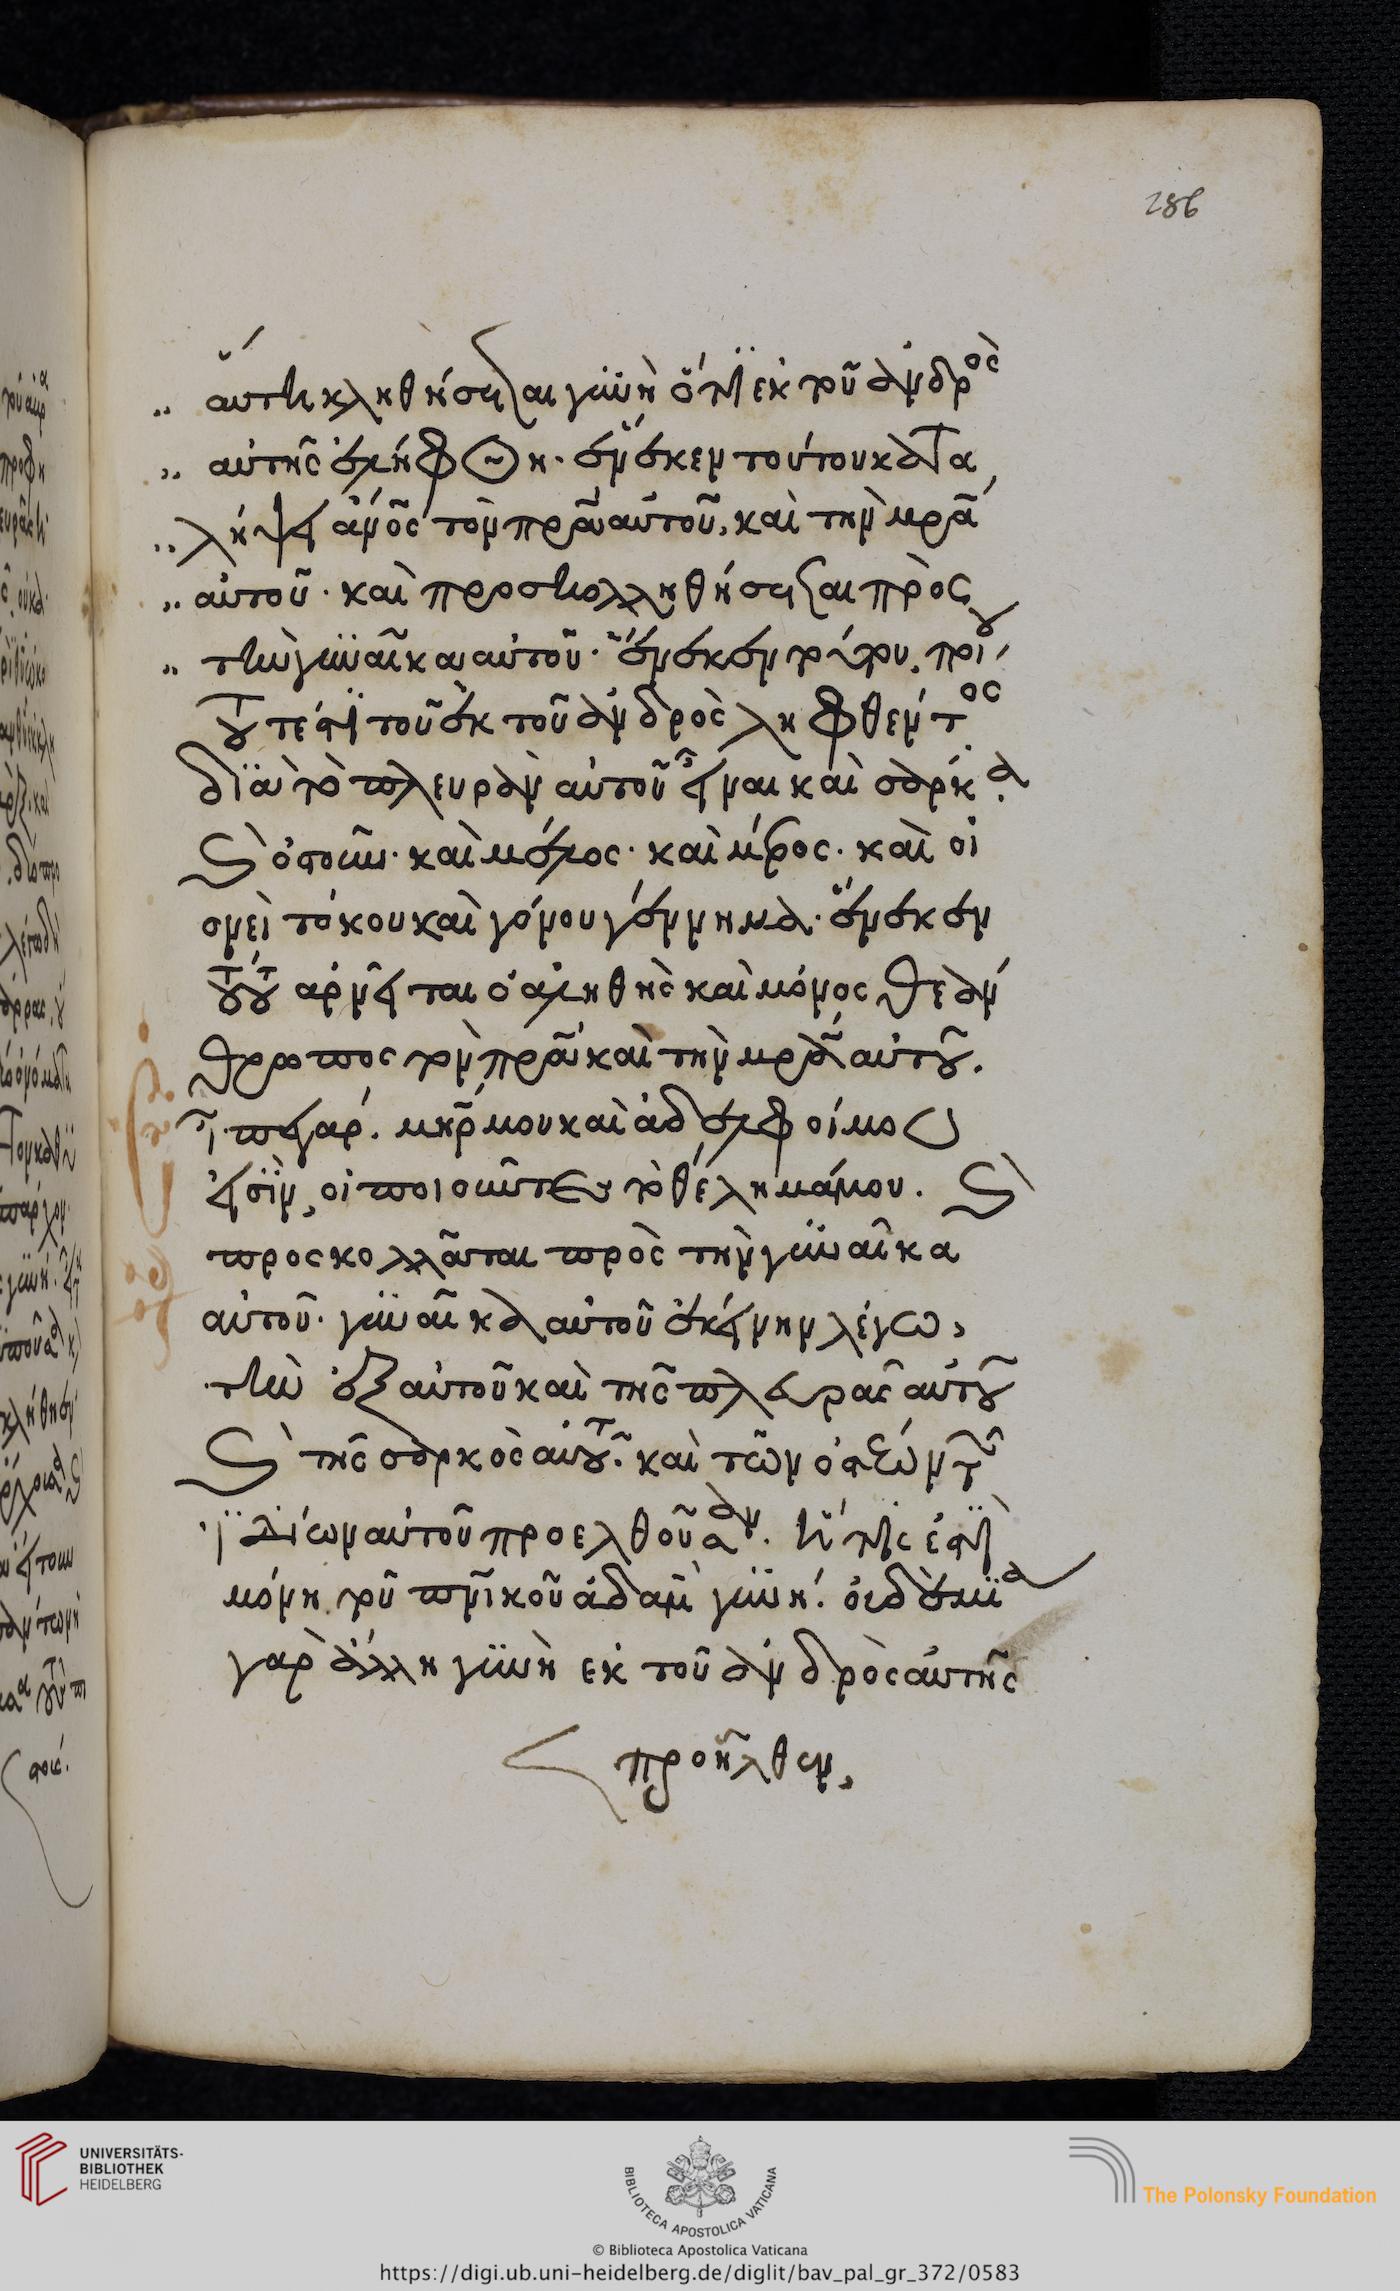 286
αὕτη κληθήσεται γυνὴ ὅτι ἐκ τοῦ ἀνδρὸς
αὐτῆς ἐλήφθη· ἕνεκεν τούτου κατα
λήψει ἄνος τὸν πρᾶ αὐτοῦ, καὶ τὴν μρᾶ
αὐτοῦ· καὶ προσκολληθήσεται πρὸς
τὴν γυναῖκα αὐτοῦ· ἕνεκεν τούτου
τοῦ ἐκ τοῦ ἀνδρὸς ληφθέντος
αὐτοῦ εἶναι καὶ σάρκα
καὶ ὀστοῦν· καὶ μέλος· καὶ μέρος· καὶ οἱ
ονεὶ τόκου καὶ γόνου γέννημα· ἕνεκεν
τούτου ἀρνεῖται ὁ ἀληθὴς καὶ μόνος θεάν
θρωπος τὸν πρᾶ καὶ τὴν μρᾶ αὐτοῦ.
μηρ μου καὶ ἀδελφοί μου
εἰσὶν, οἱ ποιοῦντες τὸ θέλημά μου. καὶ
προσκολλᾶται πρὸς τὴν γυναῖκα
αὐτοῦ· γυναῖκα αὐτοῦ ἐκείνην λέγω,
τὴν ἐξ αὐτοῦ καὶ τῆς πλευρᾶς αὐτοῦ
καὶ τῆς σαρκὸς αὐτοῦ· καὶ τῶν ὀστέων τῶν
ἰδίων αὐτοῦ προελθοῦσαν· ἥτις ἐστὶ
μόνη τοῦ πνικοῦ ἀδὰμ γυνή! οὐδεμία
γὰρ ἄλλη γυνὴ ἐκ τοῦ ἀνδρὸς αὐτῆς
προῆλθεν,
UNIVERSITÄTS-
BIBLIOTHEK
HEIDELBERG
BIBLIOTECA APOSTOLICA VATICANA
The Polonsky Foundation
© Biblioteca Apostolica Vaticana
https://digi.ub.uni-heidelberg.de/diglit/bav_pal_gr_372/0583